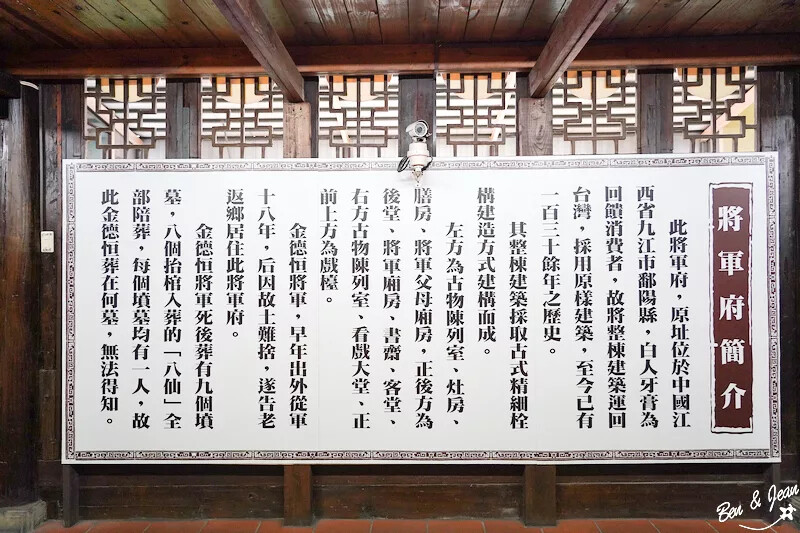 將軍府簡介
此將軍府，原址位於中國江
西省九江市鄱陽縣，白人牙膏為
回饋消費者，故將整棟建築運回
台灣，採用原樣建築，至今已有
一百三十餘年之歷史。
其整棟建築採取古式精細栓
構建造方式建構而成。
左方為古物陳列室、灶房、
膳房、將軍父母廂房，正後方為
後堂、將軍廂房、書齋、客堂、
右方古物陳列室、看戲大堂、正
前上方為戲檯。
金德恒將軍，早年出外從軍
十八年，后因故土難捨，遂告老
返鄉居住此將軍府。
金德恒將軍死後葬有九個墳
墓，八個抬棺入葬的「八仙」全
部陪葬，每個墳墓均有一人，故
此金德恒葬在何墓，無法得知。
Ben & Jean